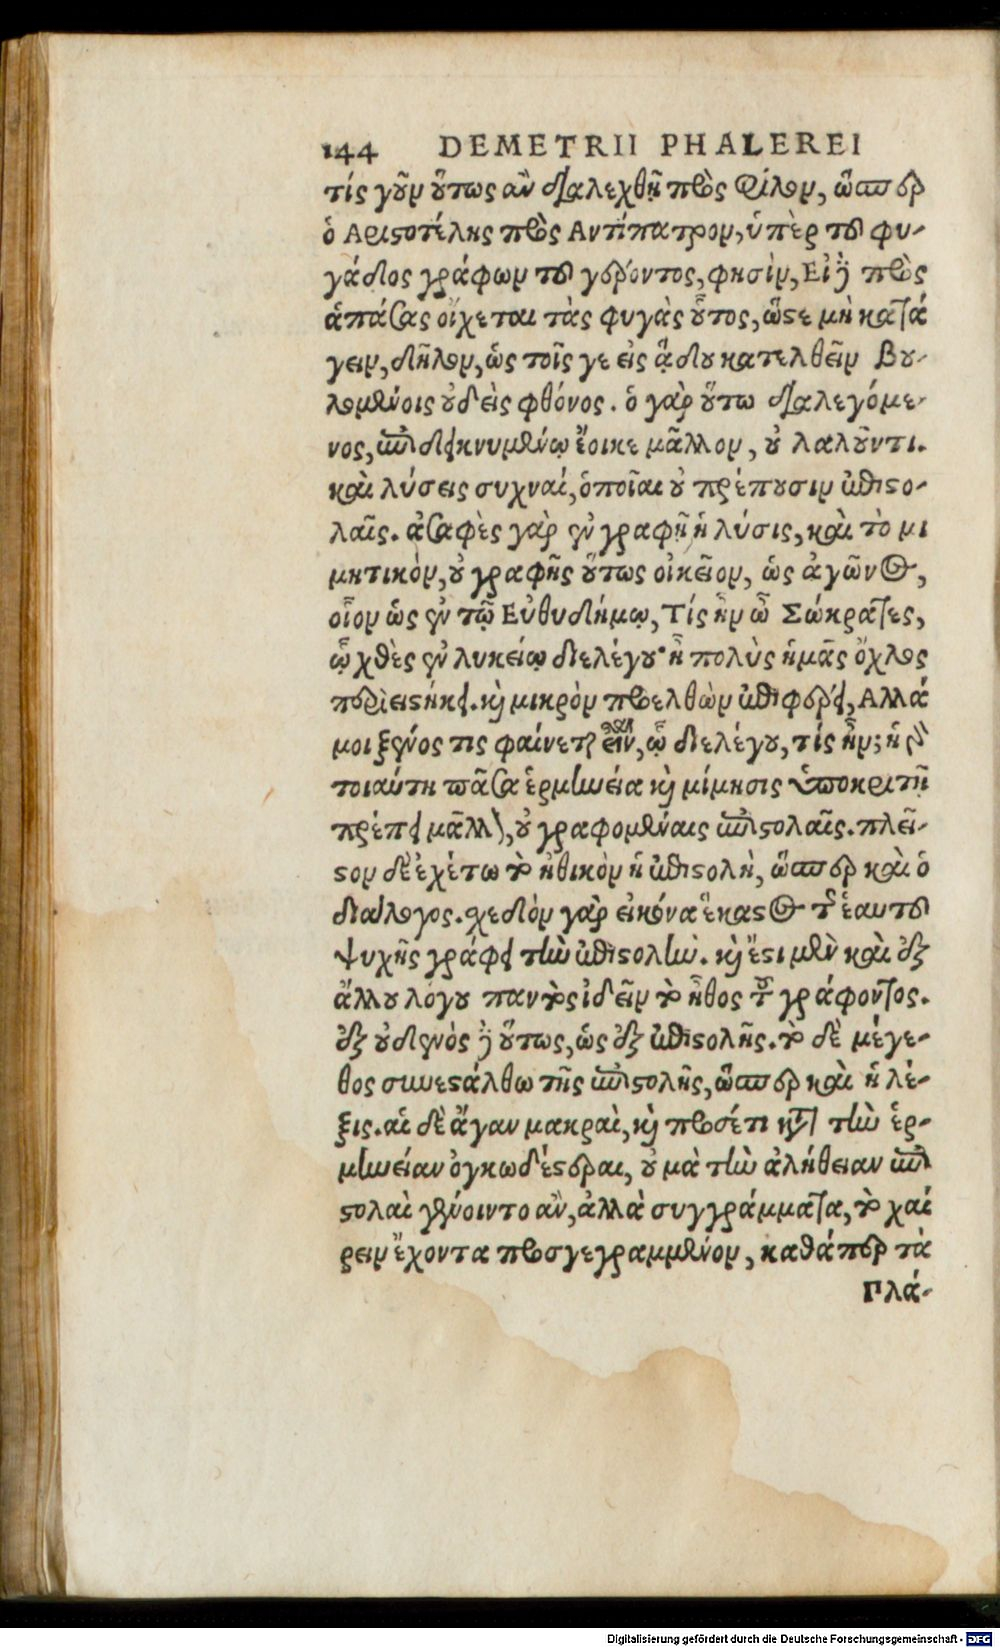 144 DEMETRII PHALEREI
τίς γοῦν οὕτως ἂν διαλεχθῇ πρὸς φίλον, ὥσπερ
ὁ Αριστοτέλης πρὸς Αντίπατρον, ὑπὲρ τοῦ φυ-
γάδος γράφων τοῦ γέροντος, φησὶν, Εἰ δὲ πρὸς
ἁπάσας οἴχεται τὰς φυγὰς οὗτος, ὥστε μὴ κατά
γειν, δῆλον, ὡς τοῖς γε εἰς ᾅδου κατελθεῖν βου-
λομένοις οὐδεὶς φθόνος. ὁ γὰρ οὕτω διαλεγόμε-
νος, ἐπιδεικνυμένῳ ἔοικε μᾶλλον, οὐ λαλοῦντι.
καὶ λύσεις συχναί, ὁποῖαι οὐ πρέπουσιν ἐπιστο-
λαῖς. ἀσαφὲς γὰρ ἐν γραφῇ ἡ λύσις, καὶ τὸ μι
μητικὸν, οὐ γραφῆς οὕτως οἰκεῖον, ὡς ἀγῶνος,
οἷον ὡς ἐν τῷ Εὐθυδήμῳ, Τίς ἦν ὦ Σώκρατες,
ᾧ χθὲς ἐν λυκείῳ διελέγου· ἦ πολὺς ἡμᾶς ὄχλος
περιειστήκει. καὶ μικρὸν προελθὼν ἐπιφέρει, Αλλά
μοι ξένος τις φαίνεται εἶναι, ᾧ διελέγου, τίς ἦν; ἡ γὰρ
τοιαύτη πᾶσα ἑρμηνεία καὶ μίμησις ὑποκριτῇ
πρέπει μᾶλλον, οὐ γραφομέναις ἐπιστολαῖς. πλεῖ-
στον δὲ ἐχέτω τὸ ἠθικὸν ἡ ἐπιστολὴ, ὥσπερ καὶ ὁ
διάλογος. χεδὸν γὰρ εἰκόνα ἕκαστος τῆς ἑαυτοῦ
ψυχῆς γράφει τὴν ἐπιστολὴν. καὶ ἔστι μὲν καὶ ἐξ
ἄλλου λόγου παντὸς ἰδεῖν τὸ ἦθος τοῦ γράφοντος.
ἐξ οὐδενὸς δὲ οὕτως, ὡς ἐξ ἐπιστολῆς. τὸ δὲ μέγε-
θος συνεστάλθω τῆς ἐπιστολῆς, ὥσπερ καὶ ἡ λέ-
ξις. αἱ δὲ ἄγαν μακραὶ, καὶ προσέτι κατὰ τὴν ἑρ-
μηνείαν ὀγκωδέστεραι, οὐ μὰ τὴν ἀλήθειαν ἐπι
στολαὶ γένοιντο ἂν, ἀλλὰ συγγράμματα, τὸ χαί
ρειν ἔχοντα προσγεγραμμένον, καθάπερ τὰ
Πλά-
Digitalisierung gefördert durch die Deutsche Forschungsgemeinschaft - DFG